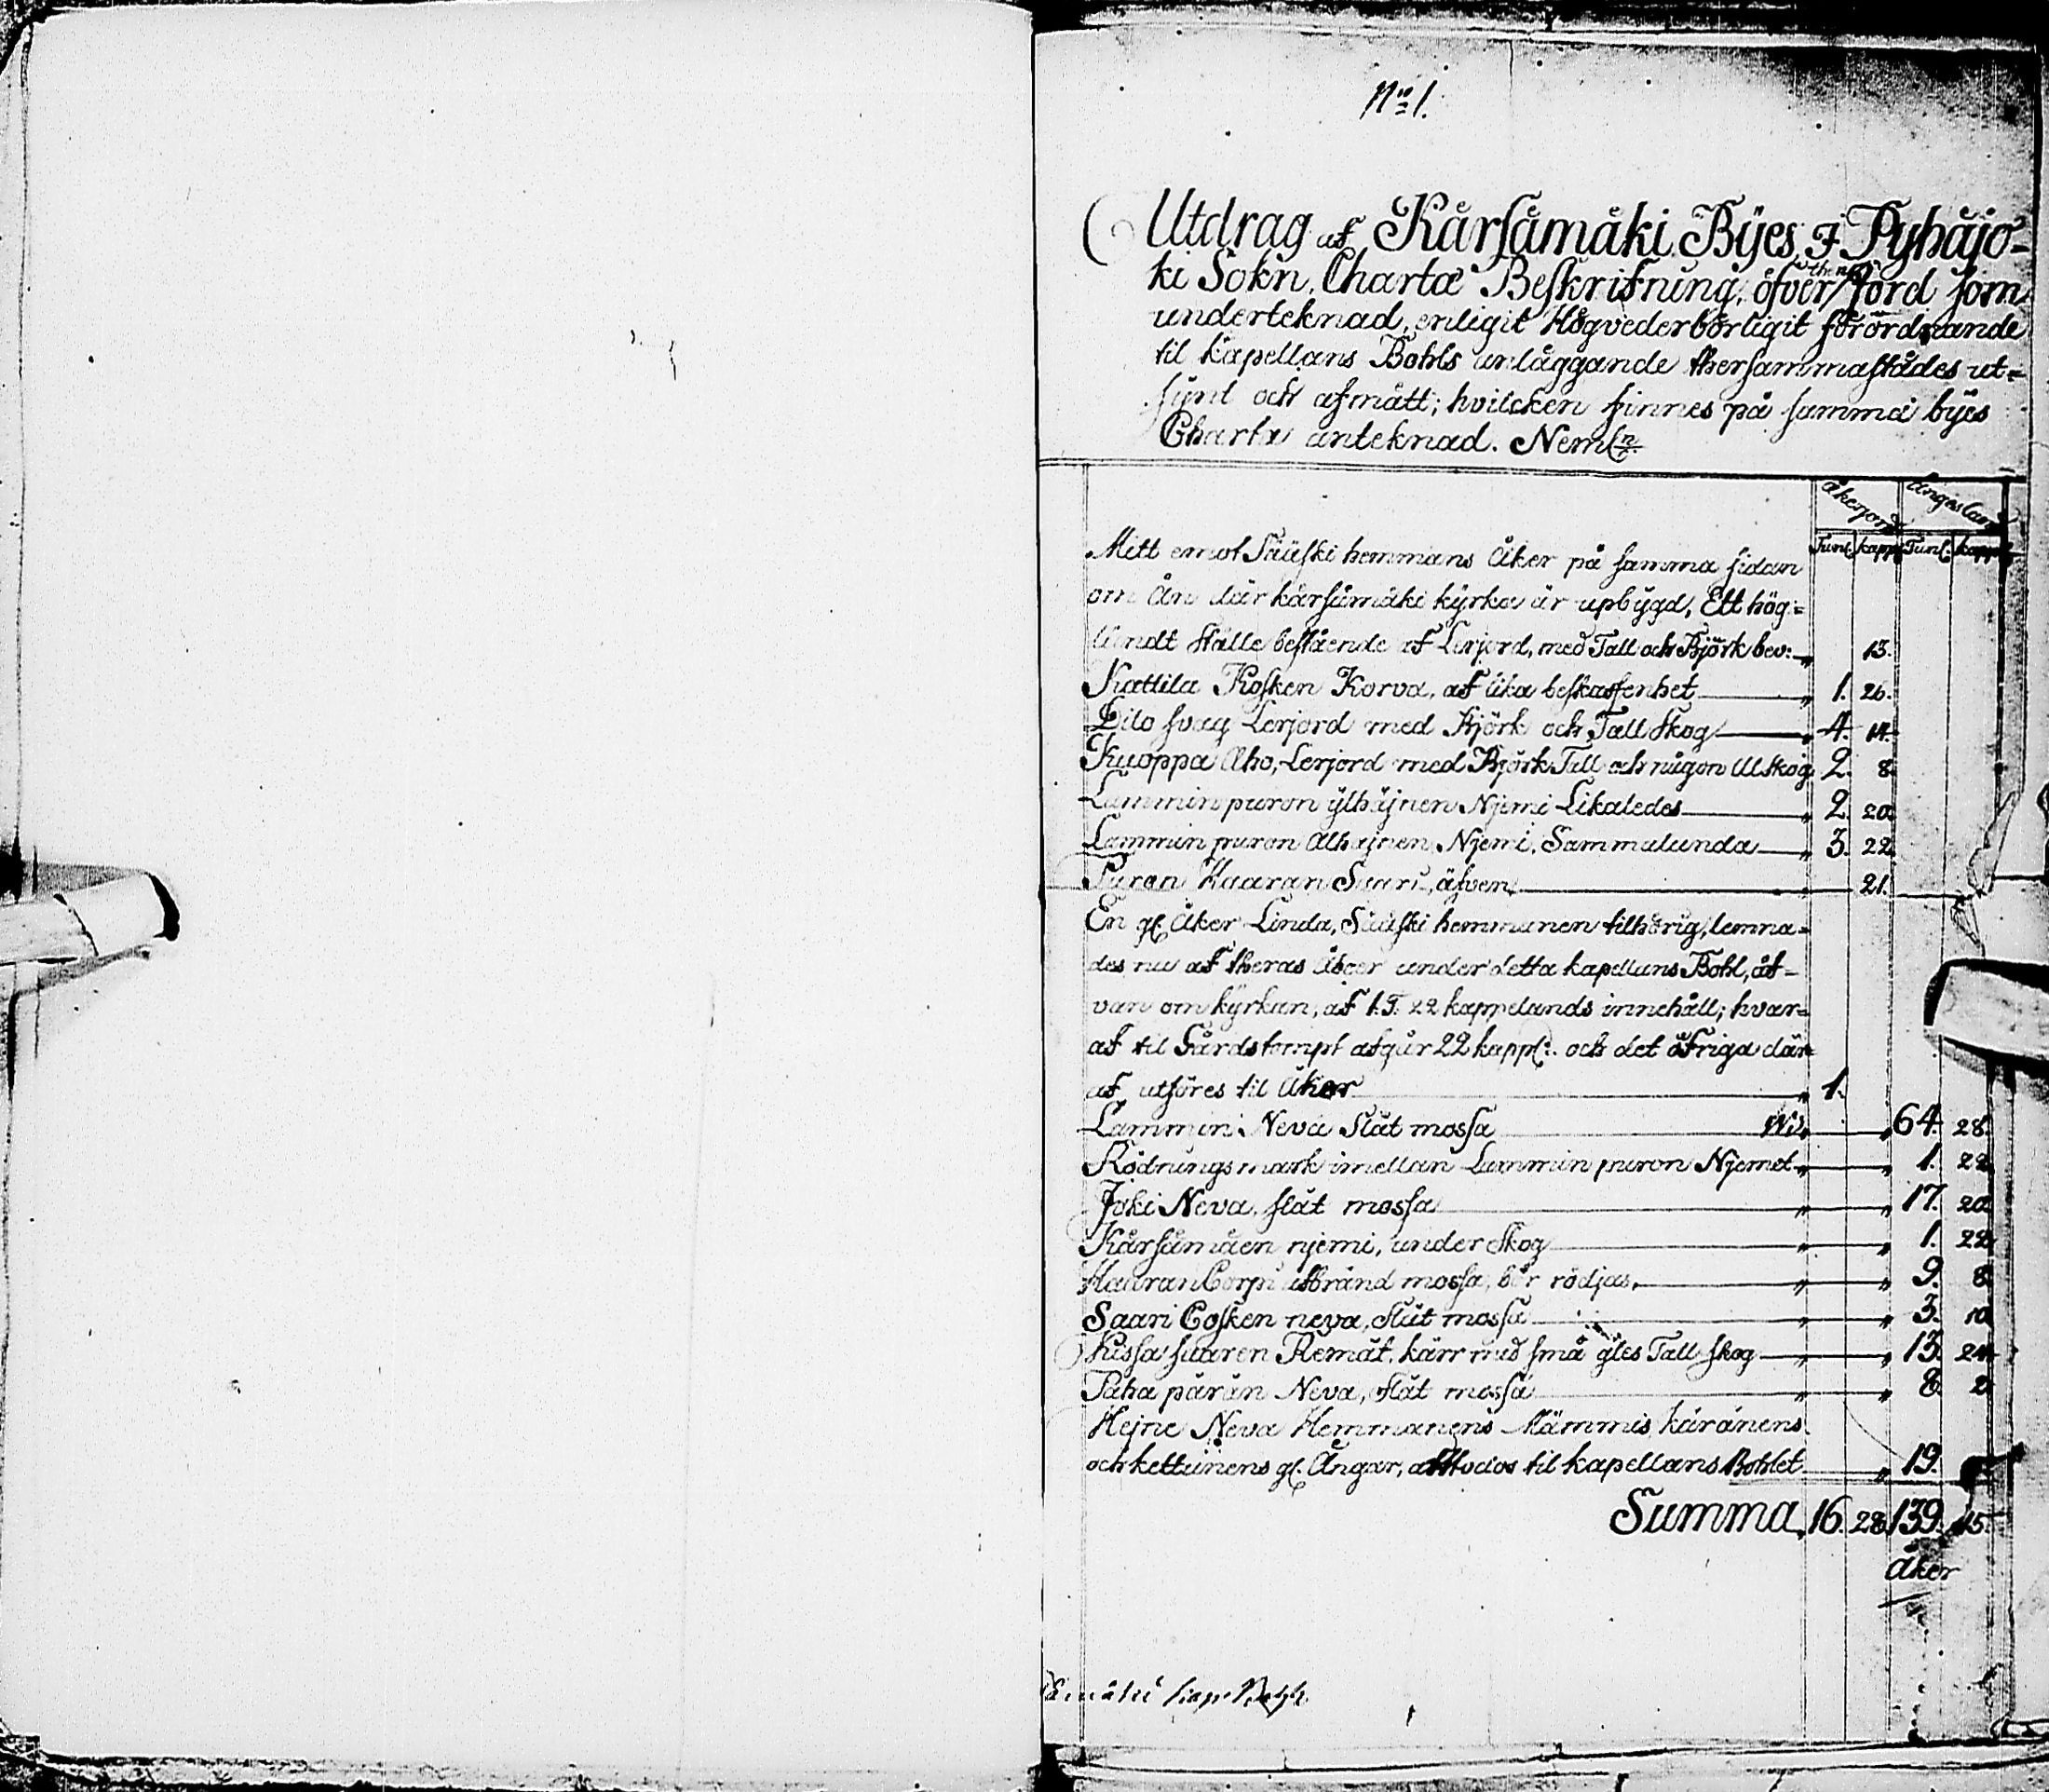 No 1.
Utdrag af Kärsämäki Bÿes I Pyhäjo-
ki Sokn, Chartæ Beskrifning, öfver then Jord som
underteknad, enligit Högvederbörligit förordnande
til kapellans Bohls anläggande thersammastädes ut-
synt och afmätt; hvilcken finnes på samma bÿes
Charta anteknad. Neml:n
Åkerjord Ängesland
Tunl. kappl. Tunl. kappl.
Mitt emot Säüski hemmans Åker på samma sidan
om Ån där kärsämäki kÿrka är upbÿgd, Ett hög-
ländt ställe bestående af Lerjord, med Tall och Björk bev: 13.
Kattila Kosken Korva, af lika beskaffenhet 1. 26.
Dito svag Lerjord med Björk och Tall skog 4. 14.
Kuoppa Aho, Lerjord med Björk Tall och någon Al skog 2. 8.
Lammin puron ÿlhäjnen Njemi Likaledes 2. 20.
Lammin puron Alhajnen Njemi, Sammalunda 3. 22.
Puron Haaran Saari, äfven 21.
En gl. Åker Linda, Säüski hemmanen tilhörig, lemna-
des nu af theras Åboer under detta kapellans Bohl, åf-
van om kÿrkan, af 1. T. 22 kappelands innehåll; hvar-
af til Gårdstompt afgår 22 kappl: och det öfriga där-
af utföres til Åker 1.
Lammin Neva Slät mossa 64. 28.
Rödnings mark imellan Lammin puron Njemet 1. 22.
Joki Neva, slät mossa 17. 20.
Kärsämäen njemi, under skog 1. 22.
Haaran Corpi afbränd mossa, bör rödjas 9. 8.
Saari Cosken neva, slät mossa 3. 10.
Kissa saaren Remät, kärr med små gles Tall skog 13. 24.
Paha pärän Neva, slät mossa 8. 2.
Hejne Neva Hemmanens Mämmis, käränens
och kettuinens gl. Ängar, til kapellans Bohlet 19.
Summa 16. 28. 139. 15.
Åker